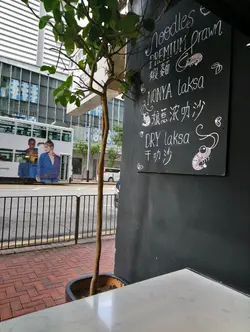 noodles
PREMIUM prawn
蝦麵
NONYA laksa
娘惹潮叻沙
DRY laksa
干叻沙